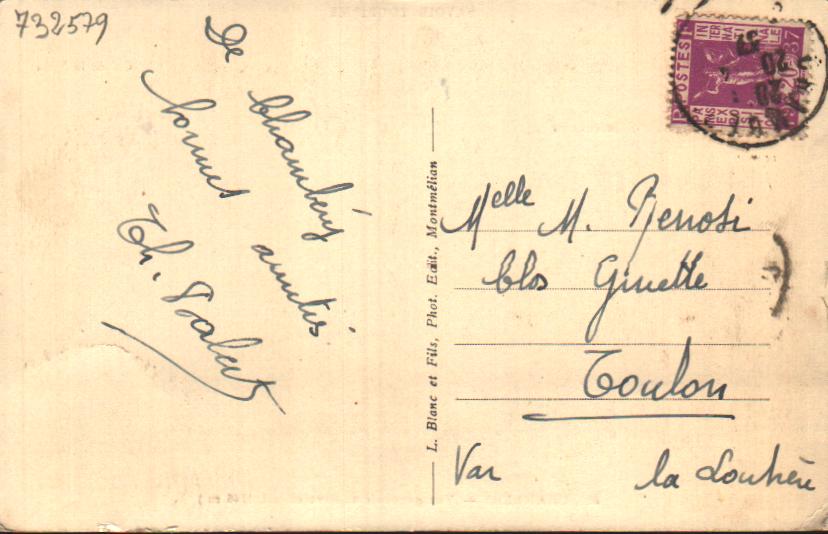 732579
De Chambéry
bonnes amitiés
Th.
L. Blanc et Fils, Phot. Edit., Montmélian
POSTES
INTERNATIONALE
PARIS 37
EXPOSITION
Melle M. Renosi
Clos Ginette
Toulon
Var
la Loubière